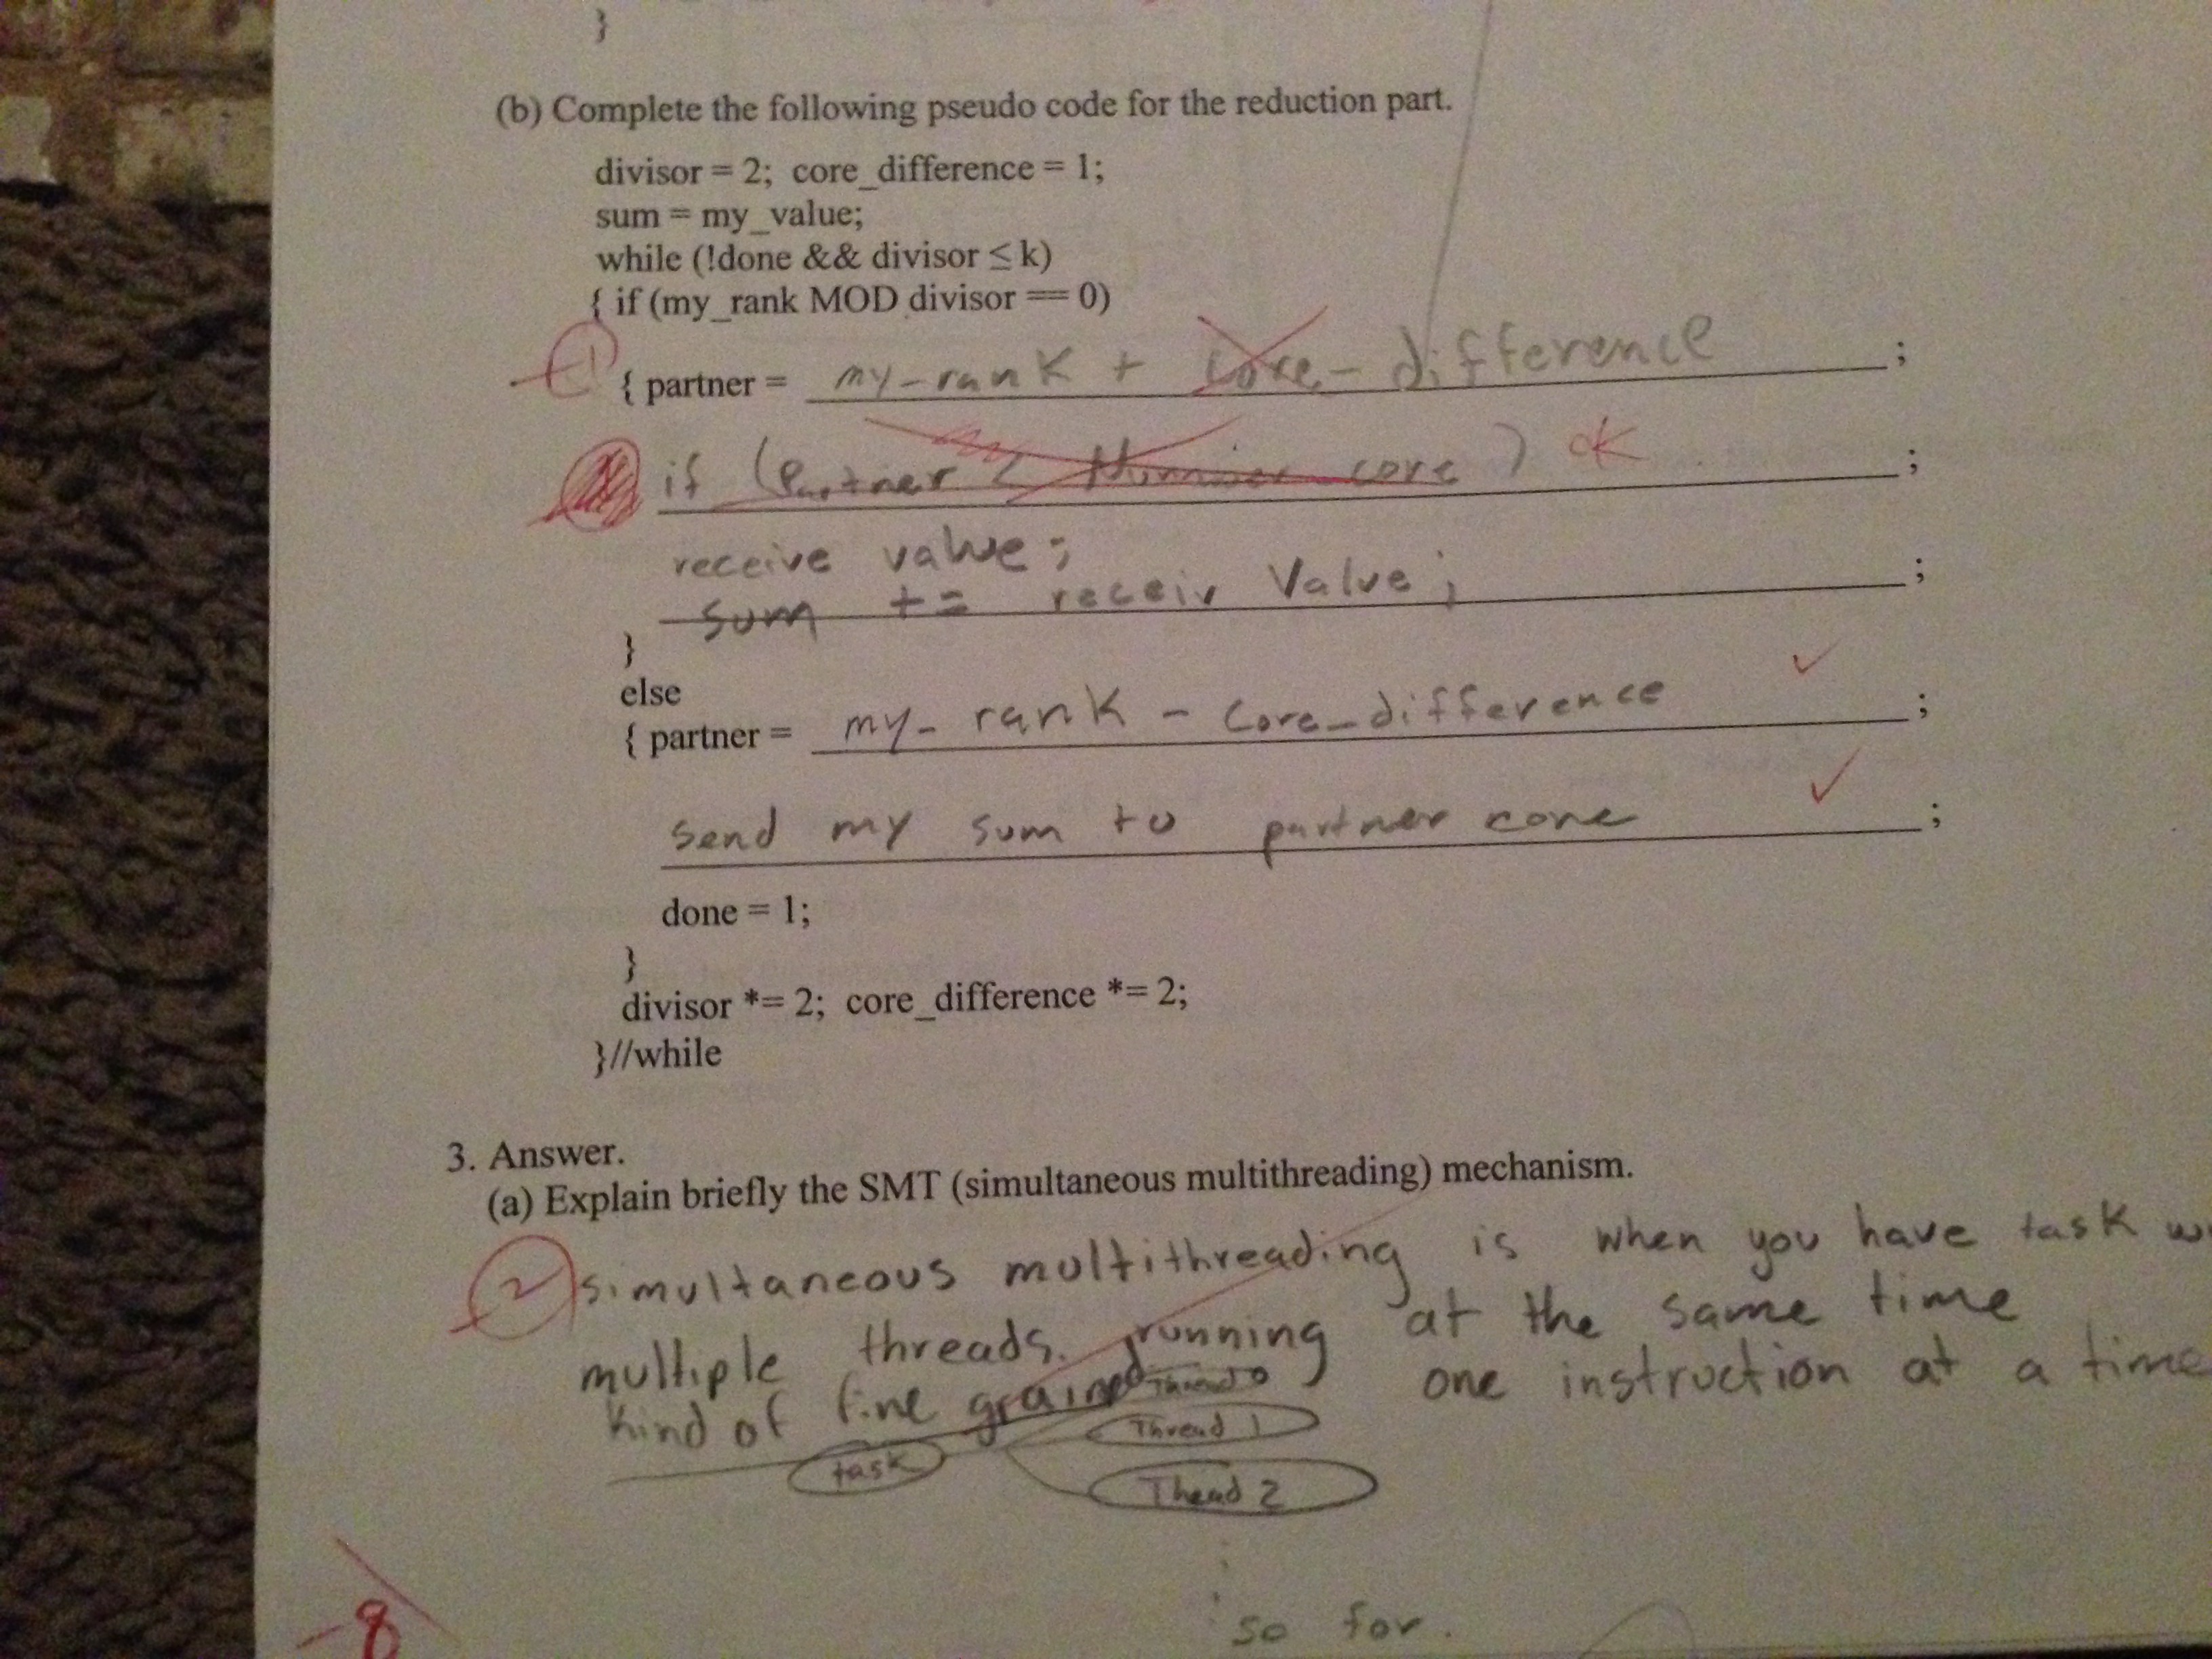 }
(b) Complete the following pseudo code for the reduction part.
divisor = 2; core_difference = 1;
sum = my_value;
while (!done && divisor ≤ k)
{ if (my_rank MOD divisor == 0)
-1
{ partner = my-rank + core-difference ;
if (partner < core) ok ;
receive value;
sum += receiv value; ;
}
else
{ partner = my-rank - core_difference ;
send my sum to partner corre ;
done = 1;
}
divisor *= 2; core_difference *= 2;
}//while
3. Answer.
(a) Explain briefly the SMT (simultaneous multithreading) mechanism.
-2
simultaneous multithreading is when you have task
multiple threads. running at the same time
kind of fine grained one instruction at a time
task
Thread 0
Thread 1
Thead 2
-8
so for.